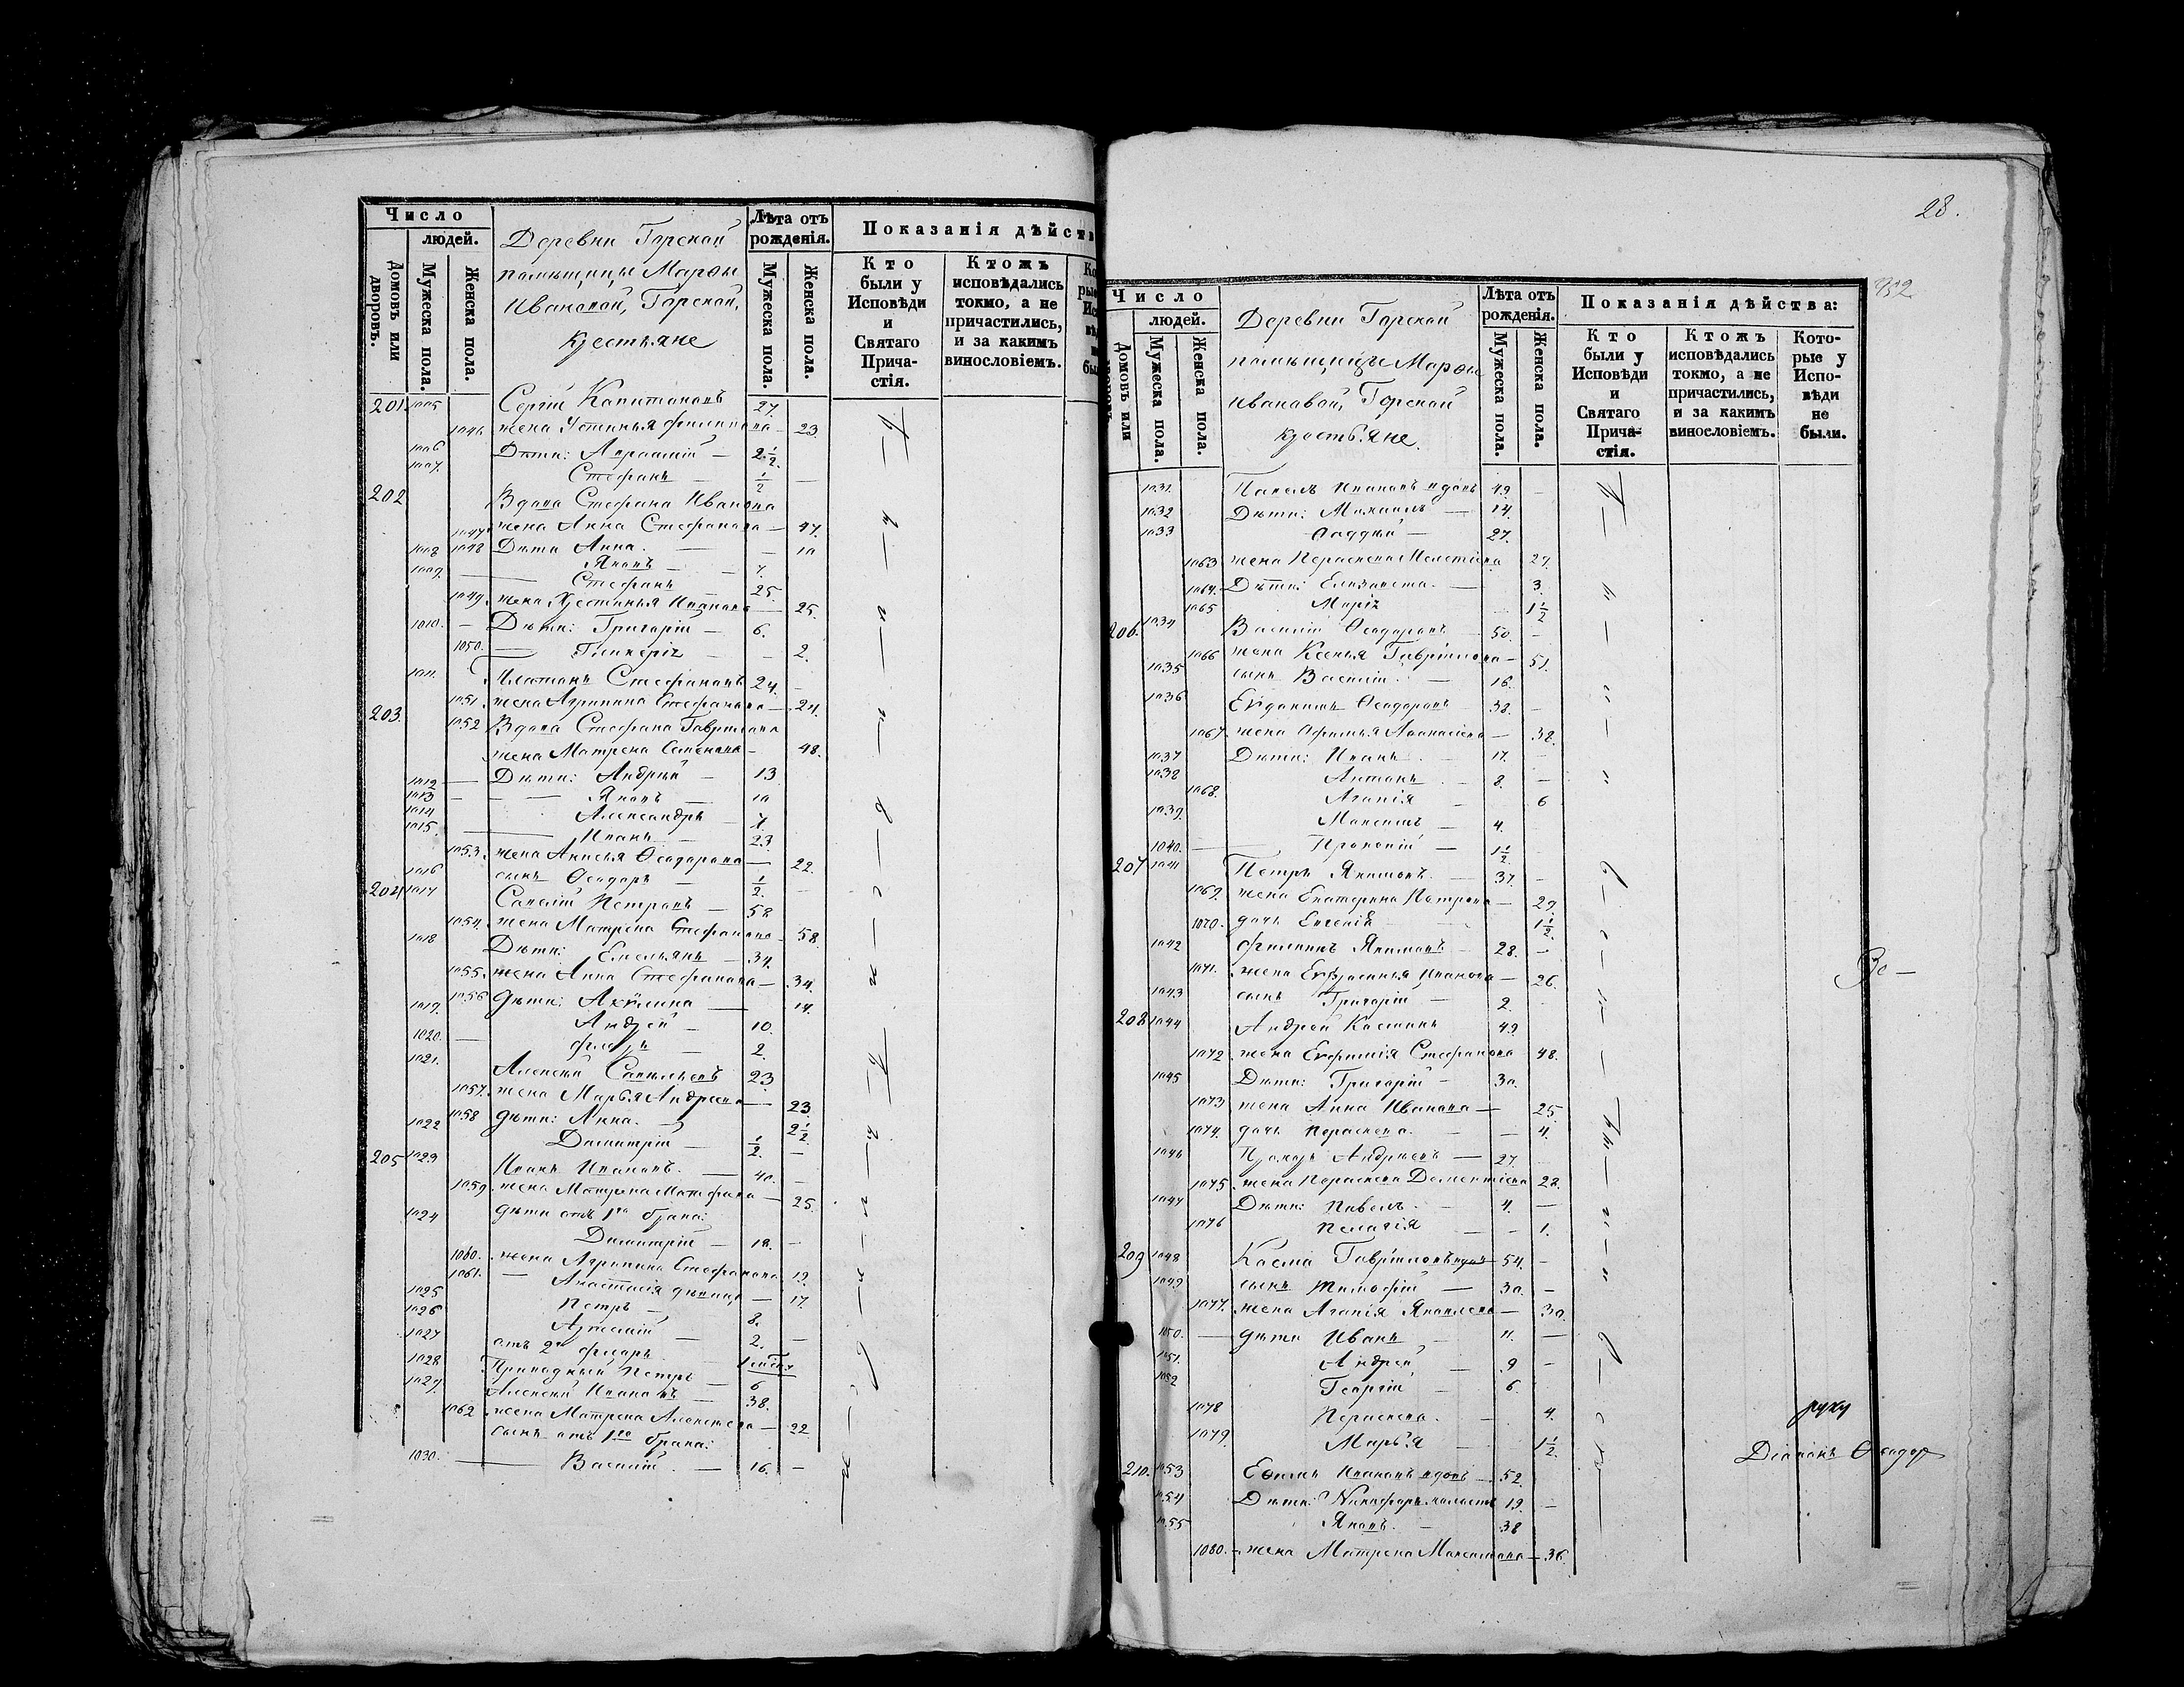 Число
людей.
Домовъ или дворовъ.
Мужеска пола.
Женска пола.
Деревни Горской
помѣщицы Марѳы
Ивановой, Горской,
крестьяне
Лѣта отъ рожденія.
Мужеска пола.
Женска пола.
Показанія дѣйств
Кто были у Исповѣди и Святаго Причастія.
Ктожъ исповѣдались токмо, а не причастились, и за какимъ винословіемъ.
201 1005 Сергій Капитоновъ 27.
1046. жена Устинья Филиппова — 23.
1006 Дѣти: — 2 1/2.
1007. Стефанъ — 1/2 —
202 Вдова Стефана Иванова
1047. жена Анна Стефанова — 47.
1048 Дѣти Анна. — — 10
1008 Яковъ — 7.
1009. Стефанъ — 25.
1049. жена Хрестинья — 25.
1010. — Дѣти: Григорій — 6.
1050. — Гликерія — 2.
1011. Платонъ Стефановъ 24. —
1051. жена Агрипина Стефанова — 24.
203. 1052 Вдова Стефана Гаврилова
жена Матрена Семенова — 48.
1012 — Дѣти: Андрей — 13
1013 — Яковъ — 10
1014 Александръ — 7.
1015. Иванъ — 23
1053. жена Анисья Ѳеодорова — 22.
1016 сынъ Ѳеодоръ — 1/2. —
204 1017 Савелій Петровъ — 58
1054. жена Матрена Стефанова — 58.
1018 Дѣти: Емельянъ — 34.
1055. жена Анна Стефанова — 34.
1056 дѣти: Акилина — 14.
1019. Андрей — 10.
1020. — Флоръ — 2.
1021. Алексѣй Савельевъ 23
1057. жена Марья Андреева — 23.
1058 дѣти: Анна. — 2 1/2.
1022 Димитрій — 1/2. —
205 1023 Иванъ Ивановъ. — 40. —
1059. жена Матрена — 25.
дѣти отъ 1го брака:
1024 Димитрій — 18. —
1060. жена Агрипина Стефанова 19.
1061. — Анастасія дѣвица — 17.
1025 Петръ — 8.
1026 Артемій — 2. —
1027 отъ 2го Флоръ
1028 Петръ — 6
1029. Алексѣй Ивановъ 38.
1062 жена Матрена Алексѣева — 22
сынъ отъ 1го брака:
1030. — Василій — 16. —
28.
Число
людей.
Домовъ или
Мужеска пола.
Женска пола.
Деревни Горской
помѣщицы Марѳы
Ивановой, Горской
крестьяне.
Лѣта отъ рожденія.
Мужеска пола.
Женска пола.
Показанія дѣйства:
Кто были у Исповѣди и Святаго Причастія.
Ктожъ исповѣдались токмо, а не причастились, и за какимъ винословіемъ.
Которые у Исповѣди не были.
1031. Павелъ Ивановъ вдовъ 49. —
1032 Дѣти: Михаилъ — 14.
1033 Ѳаддей — 27.
1063 жена Пераскева Мелетіева 27.
1064. Дѣти: Елизавета. — 3.
1065 Марія 1 1/2
206. 1034 Василій Ѳеодоровъ 50. —
1066 жена Ксенья Гаврилова — 51.
1035 сынъ Василій. — 16.
1036 Евдокимъ Ѳеодоровъ 38. —
1067 жена Афимья Афанасіева — 38.
1037 Дѣти: Иванъ. — 11. —
1038 Антонъ. — 8. —
1068. Агапія — 6
1039. Максимъ — 4.
1040. Прокопій — 1 1/2.
207 1041 Петръ Якимовъ. — 37. —
1069. жена Екатерина Петрова — 29.
1070. дочь Евгенія 1 1/2.
1042 Филиппъ Якимовъ — 28. —
1071. жена Евфросинья Иванова — 26.
1043 сынъ Григорій — 2 —
208 1044 Андрей Косминъ 49.
1072 жена Евфимія Стефанова 48.
1045 Дѣти: Григорій — 30.
1073 жена Анна Иванова — 25.
1074. дочь Пераскева. — — 4.
1046 Прохоръ Андреевъ — 27.
1075. жена Пераскева Дементіева 28.
1047 Дѣти: Павелъ. — 4. —
1076 Пелагія — — 1.
209 1048 Косма Гавриловъ вдовъ — 54. —
1049 сынъ Тимофій — 30. —
1077. жена Агапія Яковлева — 30.
1050. — дѣти Иванъ — 11. —
1051. Андрей — 9 —
1052 Георгій — 6.
1078 Пераскева. — 4.
1079. Марья — 1 1/2.
210. 1053 Ивановъ вдовъ — 52.
1054 Дѣти: Никифоръ холостъ 19. —
1055 Яковъ. — 38
1080. — жена Матрена Максимова — 36.
руку
Діаконъ Ѳеодор